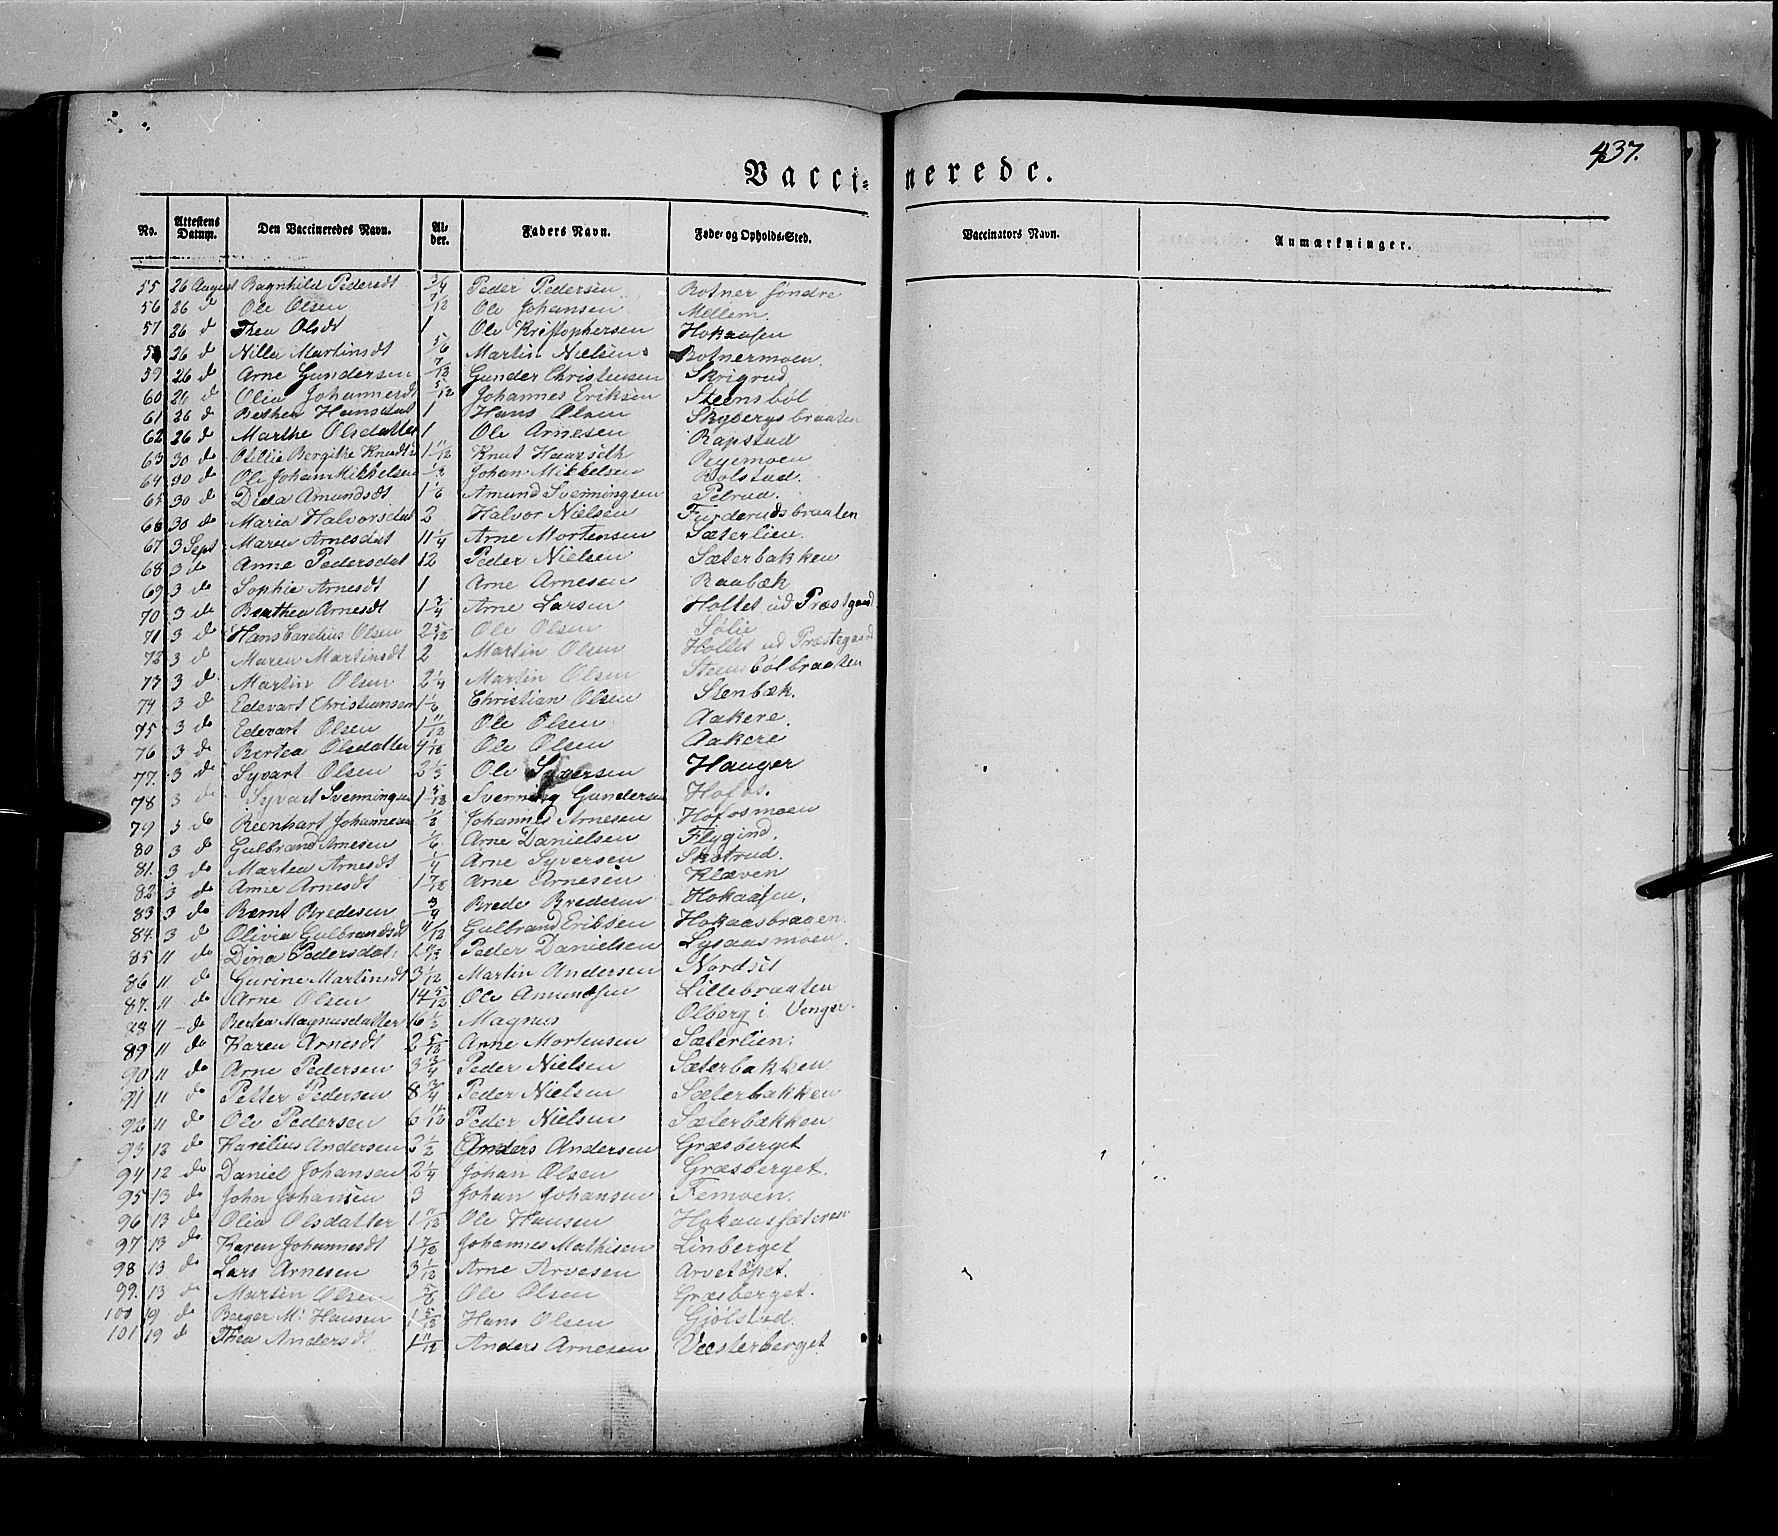 437.
Vacci-nerede.
No. Attestens Datum. Den Vaccineredes Navn. Al-der. Faders Navn. Føde- og Opholds-Sted. Vaccinators Navn. Anmærkninger.
55 26 August Ragnhild Pedersdt 3/4 Peder Pedersen Rotner søndre
56 26 d Ole Olsen 7/12 Ole Johansen Mellem
57 26 d Thea Olsdt 1 Ole Kristophersen Hokaasen
58 26 do Nille Martinsdt 5/6 Martin Nielsen Rotnermoen
59 26 do Arne Gundersen 7/12 Gunder Christensen Skrigrud
60 26 d Olia Johannesdt 5/12 Johannes Eriksen Steensbøl
61 26 d Bethea Hansdat 1 Hans Olsen Skybergsbraaten
62 26 d Marthe Olsdatter 1 Ole Arnesen Rapstad
63 30 do Otillie Bergitte Knudt 1 11/12 Knut Haarseth Ryemoen
64 30 do Ole Johan Mikkelsen 1/2 Johan Mikkelsen Rolstad.
65 30 d Dida Amundsdt 1 1/6 Amund Svenningsen Pelrud.
66 30 do Maria Halvorsdat 2 Halvor Nielsen Furderudsbraaten
67 3 Sept Maren Arnesdat 11 1/4 Arne Mortensen Sæterlien.
68 3 do Anne Pedersdat 12 Peder Nielsen Sæterbakken
69 3 do Sophie Arnesdt 1 Arne Arnesen Raabæk
70 3 do Berthea Arnesdt 1 3/4 Arne Larsen Holtet ud Præstgaard
71 3 do Hans Carelius Olsen 2 5/12 Ole Olsen Sølie
72 3 d Maren Martinsdt 2 Martin Olsen Holtet ud Præstegaard
73 3 d Martin Olsen 2 1/4 Martin Olsen Steensbølbraaten
74 3 d Edevart Christiansen 1 1/6 Christian Olsen Stenbæk.
75 3 do Edevart Olsen 1 11/12 Ole Olsen Aakere.
76 3 d Bertea Olsdatter 4 1/12 Ole Olsen Aakere
77. 3 do Syvart Olsen 2 1/3 Ole Syversen Hauger
78 3 d Syvart Svenningsen 1 5/12 Svennig Gundersen Hofos.
79 3 do Reenhart Johannesen 1/2 Johannes Arnesen Hofosmoen
80 3 do Gulbrand Arnesen 1/6 Arne Danielsen Flygind.
81. 3 do Martea Arnesdt 1/4 Arne Syversen Skotrud.
82 3 do Anne Arnesdt 1 7/12 Arne Arnesen Kleven
83 3 do Bernt Bredesen 3/4 Brede Bredesen Hokaasen.
84. 3 d Olivia Gulbrandsdt 11/12 Gulbrand Eriksen Hokaasbraaen.
85 11 do Dina Pedersdat: 1 11/12 Peder Danielsen Lysaasmoen.
86 11 do Gurine Martinsdt 3 1/12 Martin Andersen Nordset
87. 11 do Arne Olsen 14 5/12 Ole Amundsen Lillebraaten
88 11 do Bertea Magnusdatter 16 1/2 Magnus Olberg i Vinger.
89 11 do Karen Arnesdt 2 5/12 Arne Mortensen Sæterlien:
90 11 do Arne Pedersen 3 3/4 Peder Nielsen Sæterbakken
91 11 do Petter Pedersen 8 3/4 Peder Nielsen Sæterbakken
92 11 do Ole Pedersen 6 11/12 Peder Nielsen Sæterbækken
93 12 do Karelius Andersen 3 1/2 Anders Andersen Græsberget
94 12 do Daniel Johansen 2 1/4 Johan Olsen Græsberget
95 13 do John Johansen 3 Johan Johansen Femoen.
96 13 do Olia Olsdatter 1 11/12 Ole Hansen Hokaassæteren
97 13 do Karen Johannesdt 1 7/12 Johannes Mathisen Linberget
98 13 do Lars Arnesen 3 1/12 Arne Arvesen Arvetøpet.
99. 13 do Martin Olsen 5/6 Ole Olsen Græsberget.
100 19 do Berger M: Hansen 1 5/12 Hans Olsen Gjølstad.
101 19 d Thea Andersdt 1 11/12 Anders Arnesen Vesterberget